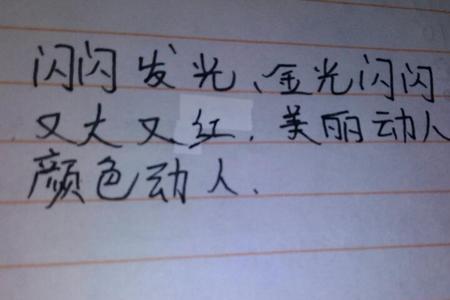 闪闪发光、金光闪闪
又大又红. 美丽动人
颜色动人.